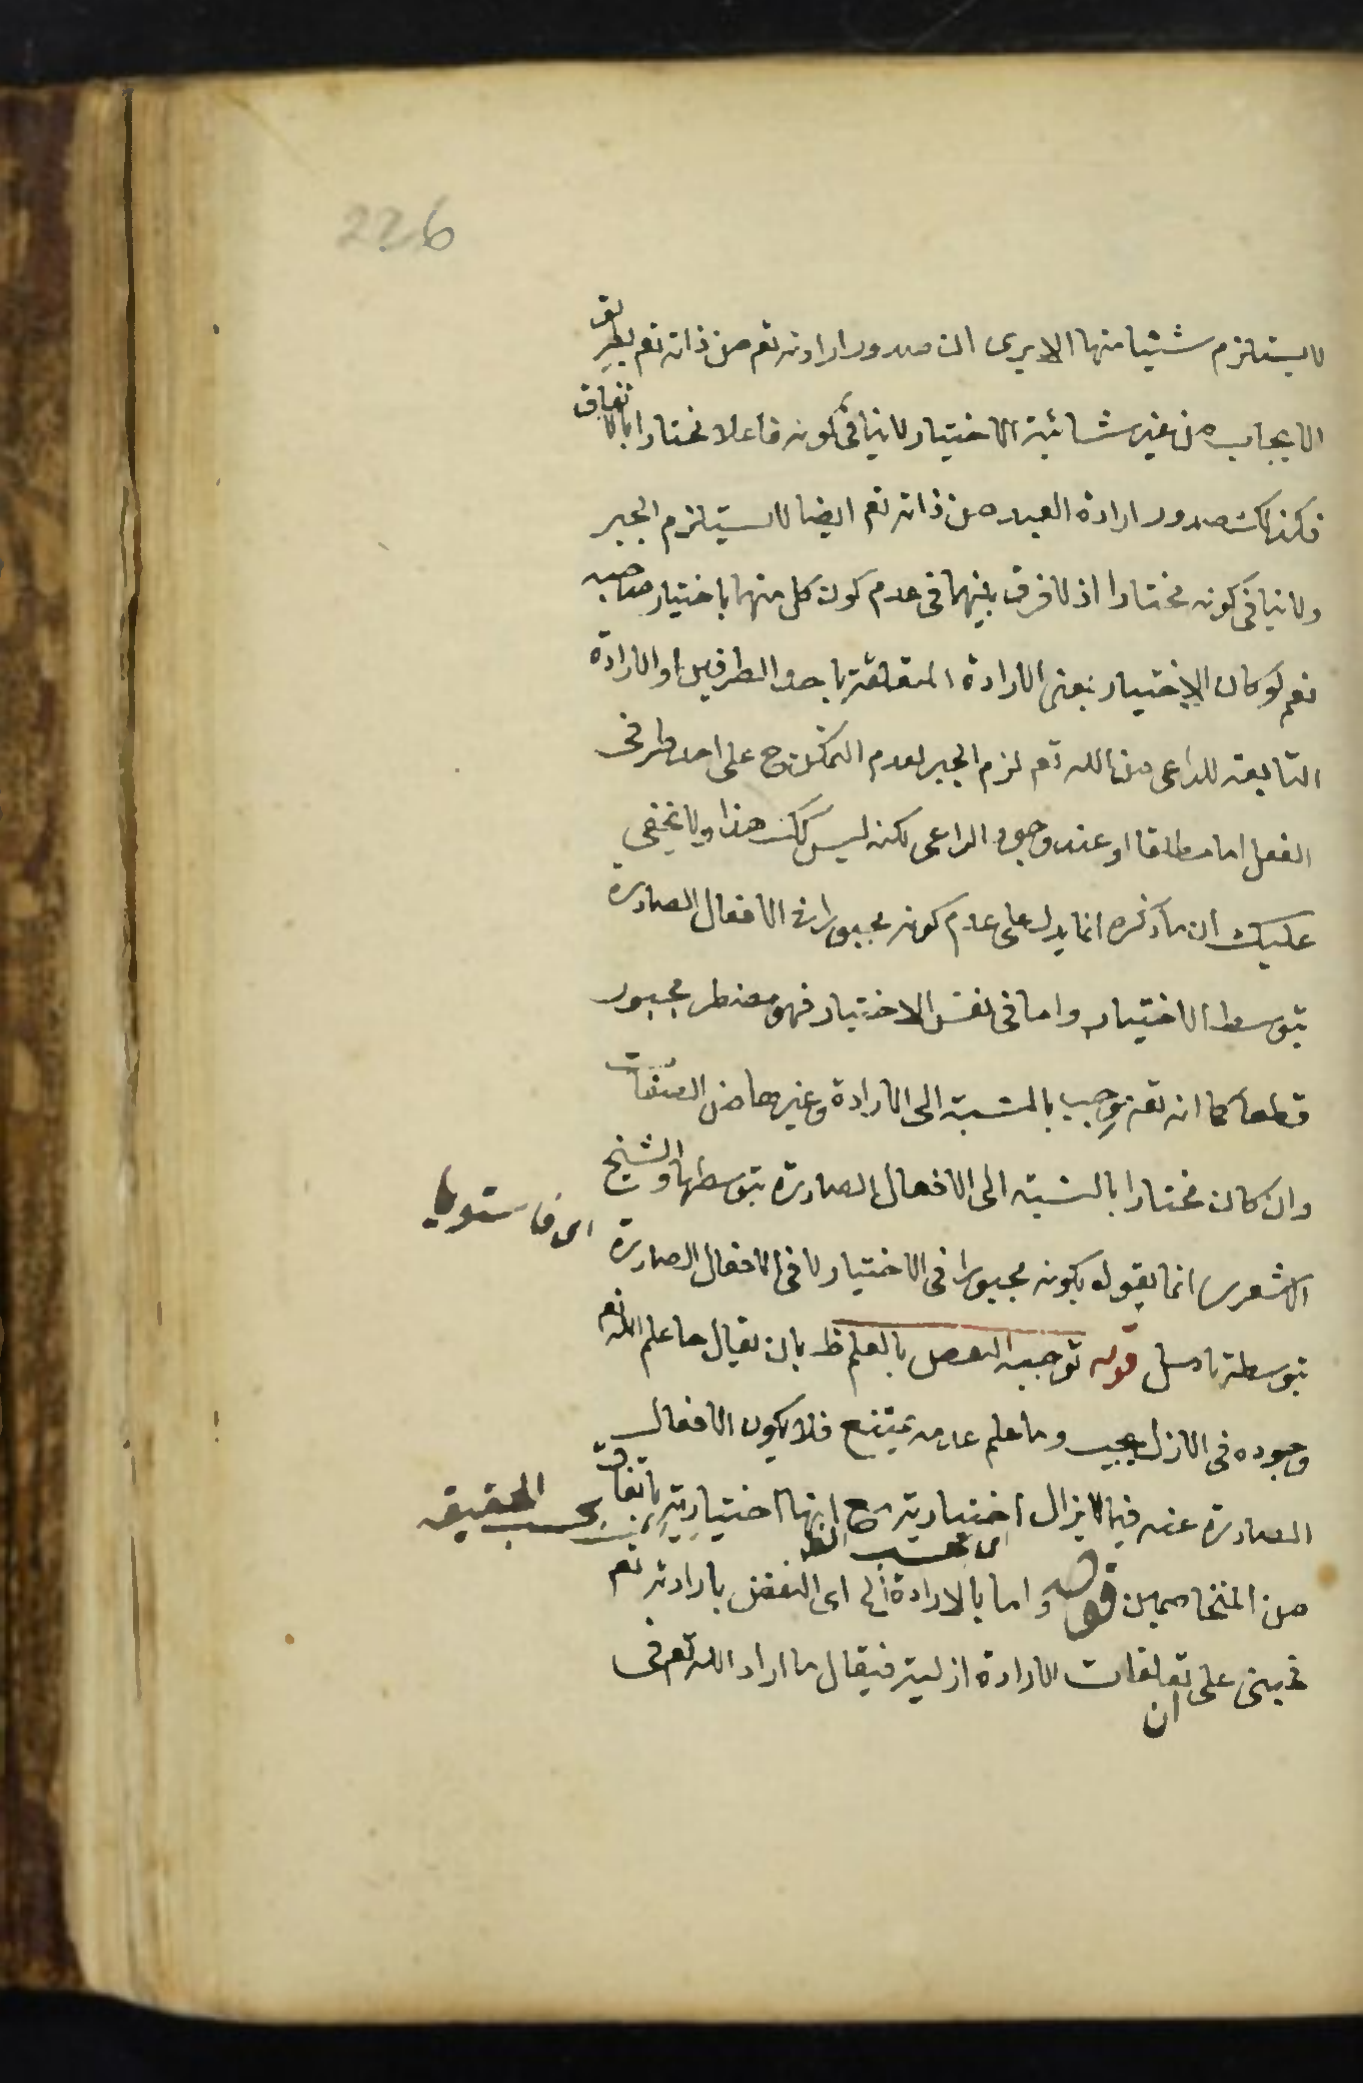 226
لا يستلزم شيئا منها الا يرى ان صدور ارادته تع من ذاته تع بطريق
الايجاب من غير شائبة الاختيار لا ينافى كونه فاعلا مختارا بالاتفاق
فكذلك صدور ارادة العبد من ذاته تع ايضا لا يستلزم الجبر
ولا ينافى كونه مختارا اذ لا فرق بينهما فى عدم كون كل منهما باختيار صاحبه
نعم لو كان الاختيار بمعنى الارادة المتعلقة باحد الطرفين او الارادة
التابعة للداعى من الله تع لزم الجبر لعدم التمكن ح على احد طرفى
الفعل اما مطلقا او عند وجود الداعى لكنه ليس كك هذا ولا يخفى
عليك ان ما ذكره انما يدل على عدم كونه مجبورا فى الافعال الصادرة
بتوسط الاختيار واما فى نفس الاختيار فهو مضطر مجبور
قطعا كما انه تع موجب بالنسبة الى الارادة وغيرها من الصفات
وان كان مختارا بالنسبة الى الافعال الصادرة بتوسطها والشيخ
اى فاستويا
الاشعرى انما يقول بكونه مجبورا فى الاختيار لا فى الافعال الصادرة
بتوسطه تامل قوله توجيه النقض بالعلم ظ بان يقال ما علم الله تع
وجوده فى الازل يجب وما علم عدمه يمتنع فلا يكون الافعال
الصادرة عنه فيما لا يزال اختيارية مع انها اختيارية باتفاق
بحسب الحقيقه
اى بحسب الظ
من المتخاصمين قوله واما بالارادة الخ اى النقض بارادته تع
فيبنى على ان تعلقات الارادة ازلية فيقال ما اراد الله تع فى